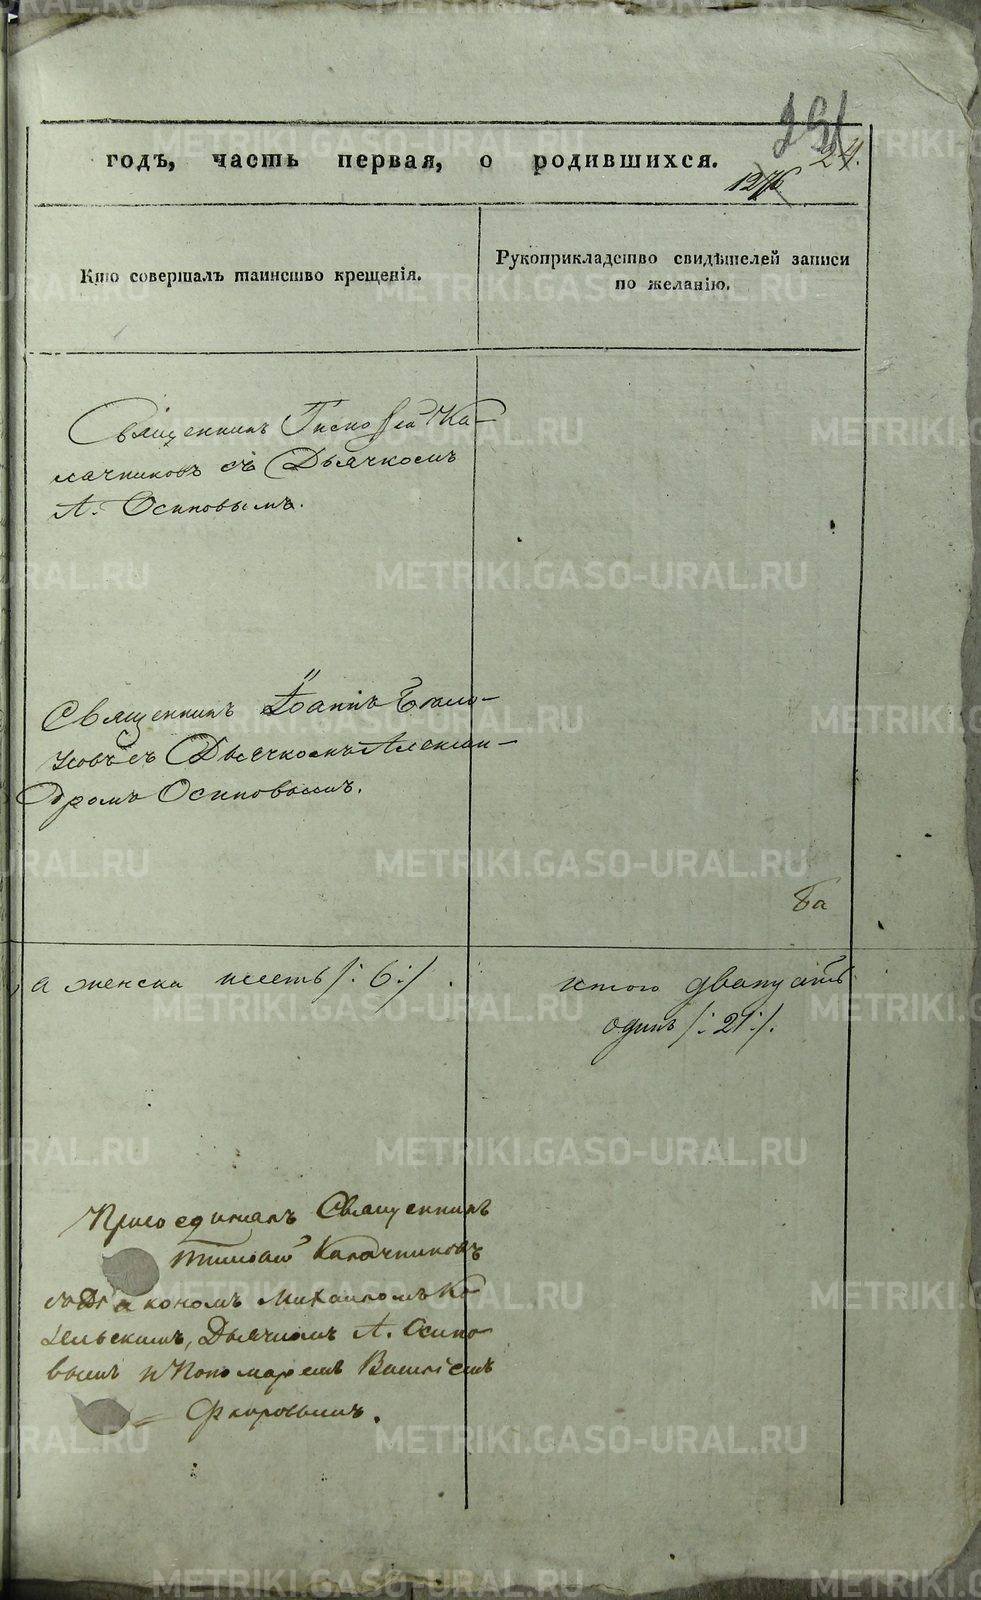 251
24.
1276
годъ, часть первая, о родившихся.
Кто совершалъ таинство крещенія.
Рукоприкладство свидѣтелей записи
по желанію.
Священникъ Ка-
лачниковъ съ Дьячкомъ
А. Осиповымъ.
Священникъ Іоаннъ Бѣло-
усовъ съ Дьячкомъ Алексан-
дромъ Осиповымъ.
Ба
а женска шесть /: 6 :/.
итого двапцать
одинъ /: 21 :/.
Присоединялъ Священникъ
Тимофей Калачниковъ
съ Діакономъ Михаиломъ Ко
зельскимъ, Дьячкомъ А. Осипо
вымъ и Пономаремъ Василіемъ
Флоровымъ.
METRIKI.GASO-URAL.RU